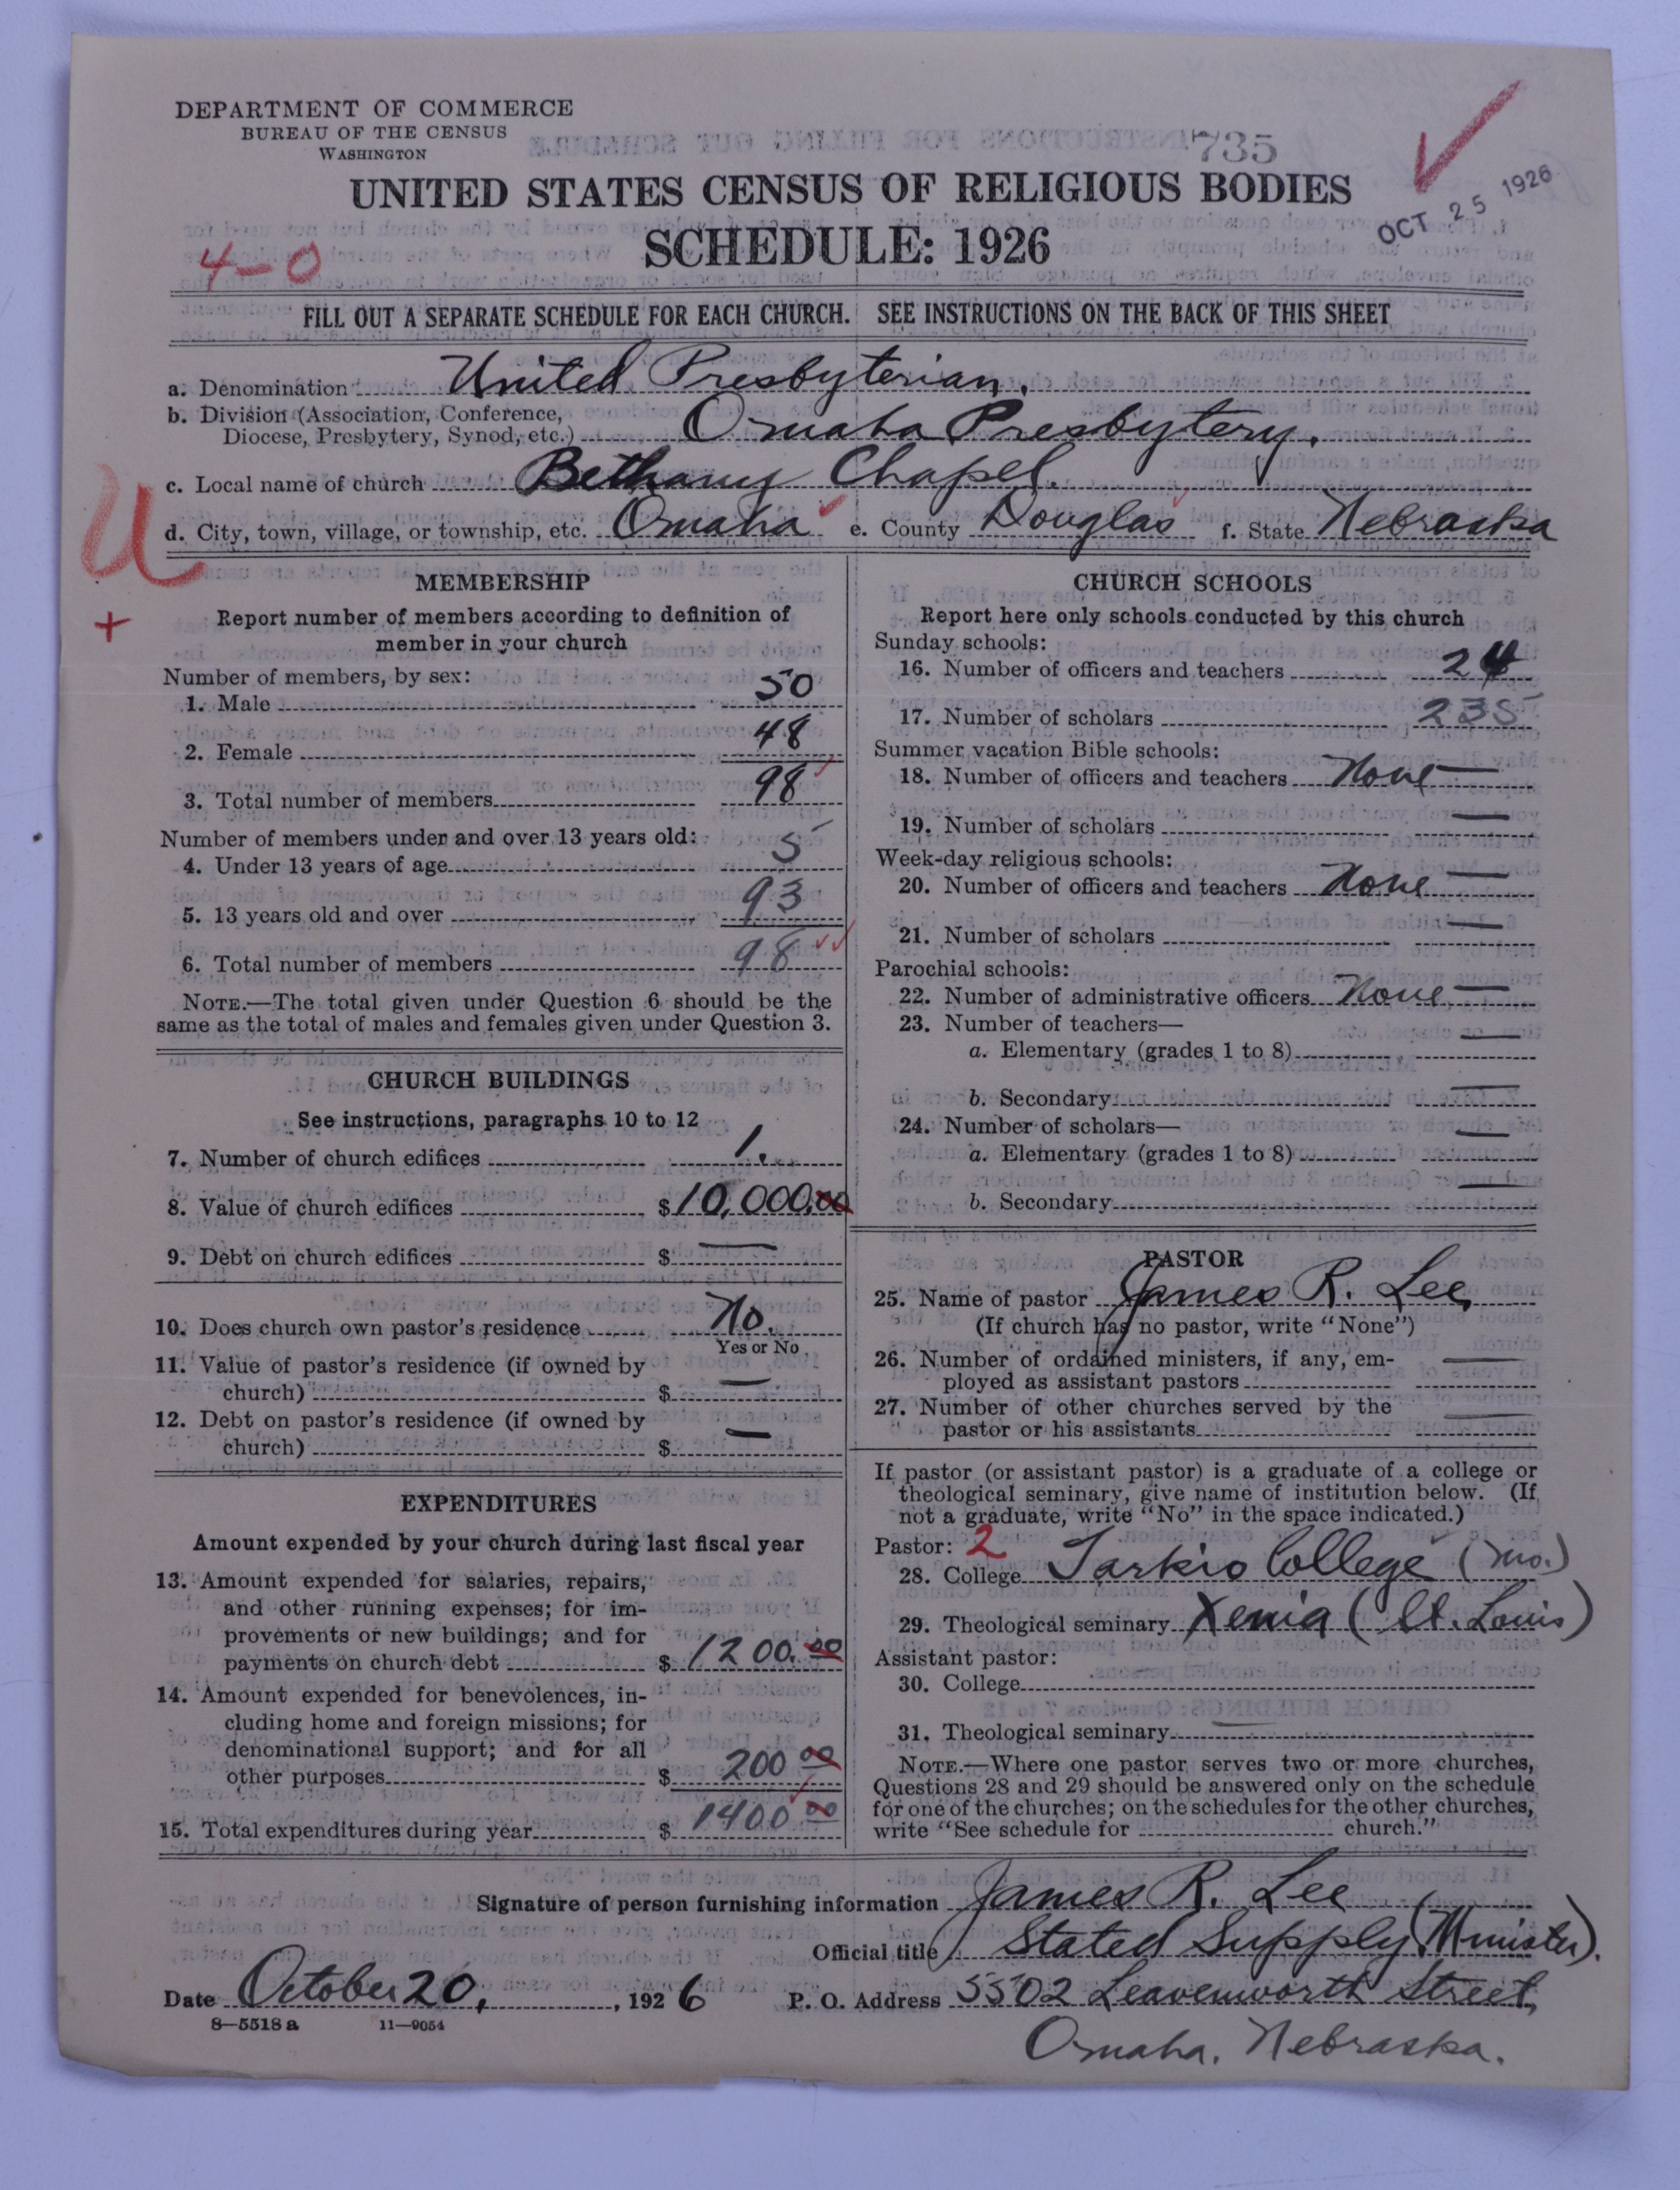 DEPARTMENT OF COMMERCE
BUREAU OF THE CENSUS
WASHINGTON
735
UNITED STATES CENSUS OF RELIGIOUS BODIES
SCHEDULE: 1926
OCT 25 1926
4-0
FILL OUT A SEPARATE SCHEDULE FOR EACH CHURCH. SEE INSTRUCTIONS ON THE BACK OF THIS SHEET
a. Denomination United Presbyterian.
b. Division (Association, Conference,
Diocese, Presbytery, Synod, etc.) Omaha Presbytery.
c. Local name of church Bethany Chapel.
d. City, town, village, or township, etc. Omaha e. County Douglas f. State Nebraska
U
+
MEMBERSHIP
Report number of members according to definition of
member in your church
Number of members, by sex:
1. Male 50
2. Female 48
3. Total number of members 98
Number of members under and over 13 years old:
4. Under 13 years of age 5
5. 13 years old and over 93
6. Total number of members 98
NOTE.—The total given under Question 6 should be the
same as the total of males and females given under Question 3.
CHURCH BUILDINGS
See instructions, paragraphs 10 to 12
7. Number of church edifices 1.
8. Value of church edifices $10,000.00
9. Debt on church edifices $ —
10. Does church own pastor's residence No.
Yes or No
11. Value of pastor's residence (if owned by
church) $ —
12. Debt on pastor's residence (if owned by
church) $ —
EXPENDITURES
Amount expended by your church during last fiscal year
13. Amount expended for salaries, repairs,
and other running expenses; for im-
provements or new buildings; and for
payments on church debt $ 1200.00
14. Amount expended for benevolences, in-
cluding home and foreign missions; for
denominational support; and for all
other purposes $ 200 00
15. Total expenditures during year $ 1400 00
CHURCH SCHOOLS
Report here only schools conducted by this church
Sunday schools:
16. Number of officers and teachers 24
17. Number of scholars 235
Summer vacation Bible schools:
18. Number of officers and teachers None —
19. Number of scholars —
Week-day religious schools:
20. Number of officers and teachers None —
21. Number of scholars —
Parochial schools:
22. Number of administrative officers None —
23. Number of teachers—
a. Elementary (grades 1 to 8) —
b. Secondary —
24. Number of scholars—
a. Elementary (grades 1 to 8) —
b. Secondary —
PASTOR
25. Name of pastor James R. Lee
(If church has no pastor, write "None")
26. Number of ordained ministers, if any, em-
ployed as assistant pastors —
27. Number of other churches served by the
pastor or his assistants —
If pastor (or assistant pastor) is a graduate of a college or
theological seminary, give name of institution below. (If
not a graduate, write "No" in the space indicated.)
Pastor: 2
28. College Tarkio College (Mo.)
29. Theological seminary Xenia (St. Louis)
Assistant pastor:
30. College
31. Theological seminary
NOTE.—Where one pastor serves two or more churches,
Questions 28 and 29 should be answered only on the schedule
for one of the churches; on the schedules for the other churches,
write "See schedule for church."
Signature of person furnishing information James R. Lee
Official title Stated Supply (Minister).
Date October 20, 1926 P. O. Address 5502 Leavenworth Street,
8—5518 a 11—9054
Omaha, Nebraska.